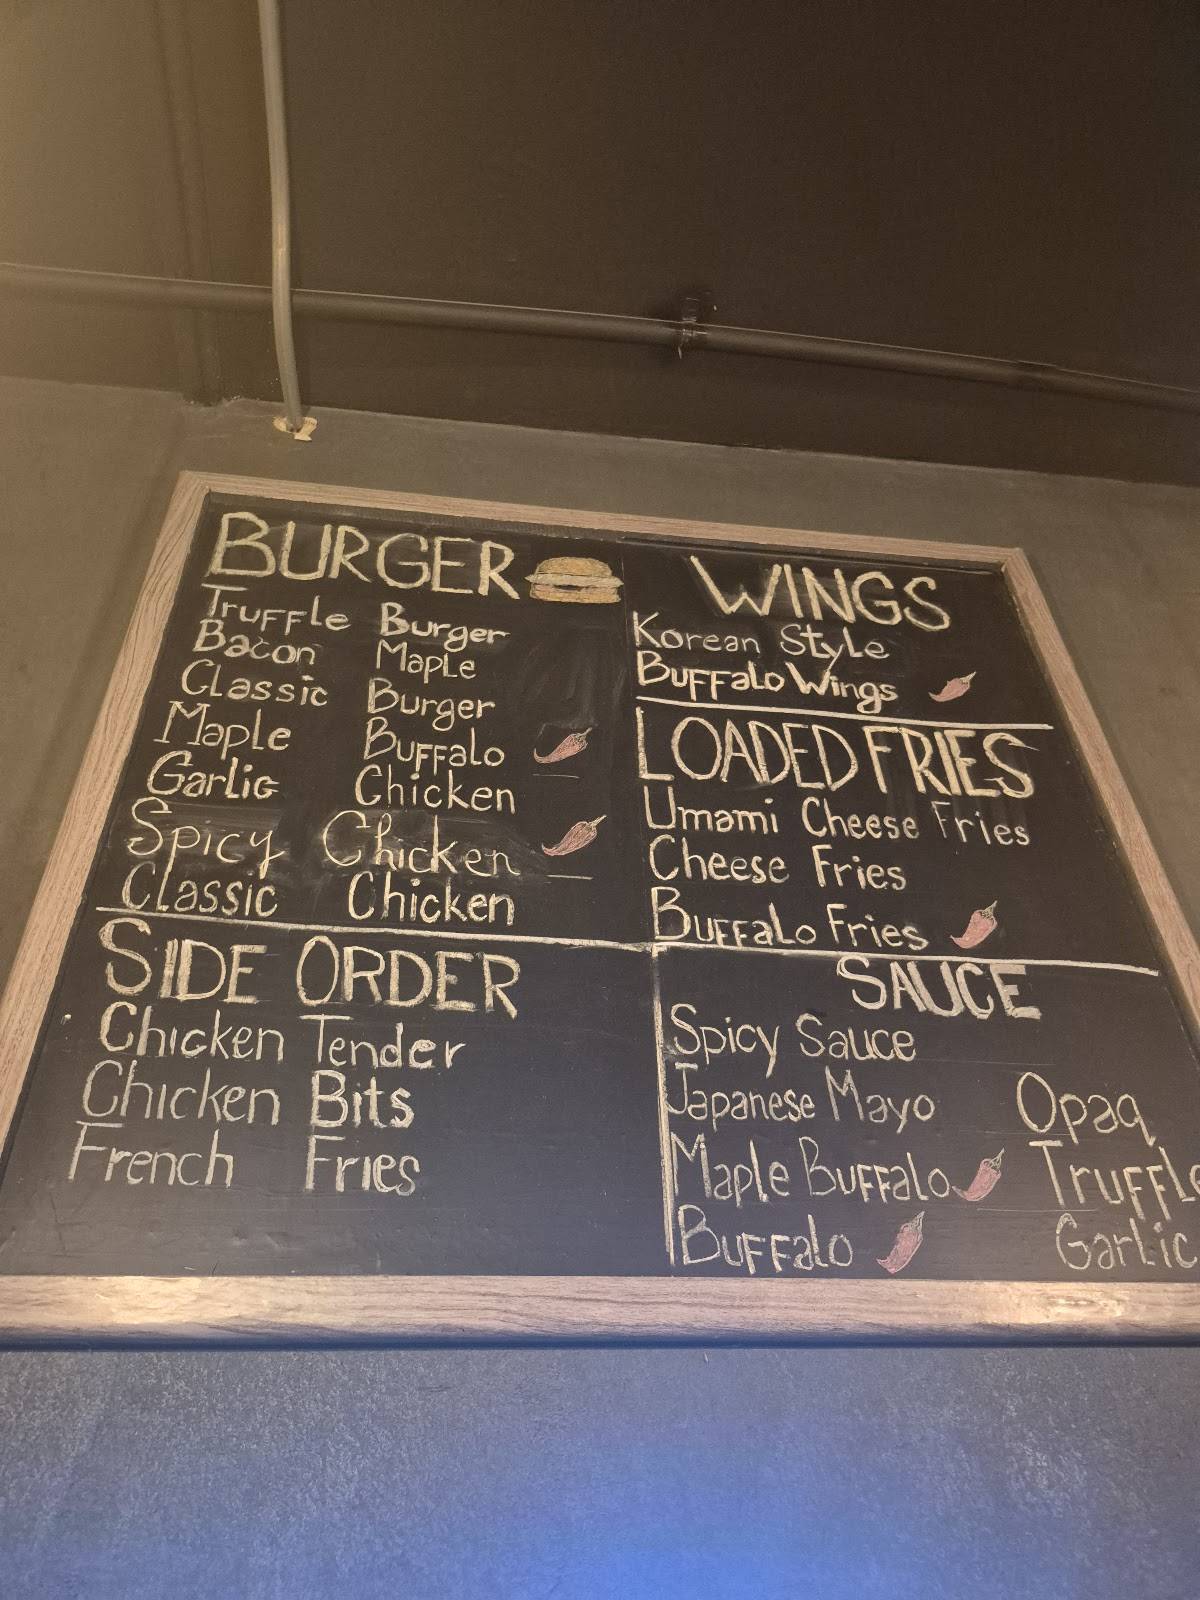 BURGER
Truffle Burger
Bacon Maple
Classic Burger
Maple Buffalo
Garlic Chicken
Spicy Chicken
Classic Chicken
SIDE ORDER
Chicken Tender
Chicken Bits
French Fries
WINGS
Korean Style
Buffalo Wings
LOADED FRIES
Umami Cheese Fries
Cheese Fries
Buffalo Fries
SAUCE
Spicy Sauce
Japanese Mayo Opaq
Maple Buffalo Truffle
Buffalo Garlic